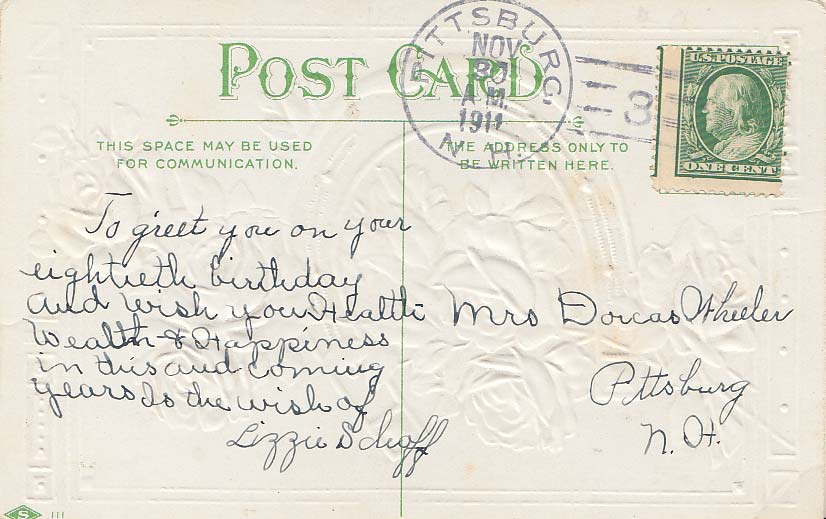 POST CARD
PITTSBURG,
NOV
30
A.M.
1911
N. H.
3
U.S. POSTAGE
ONE CENT
THIS SPACE MAY BE USED
FOR COMMUNICATION.
THE ADDRESS ONLY TO
BE WRITTEN HERE.
To greet you on your
eightieth birthday
And wish you Health
Wealth & Happiness
in this and coming
years Is the wish of
Lizzie Schoff
Mrs Dorcas Wheeler
Pittsburg
N. H.
S 111